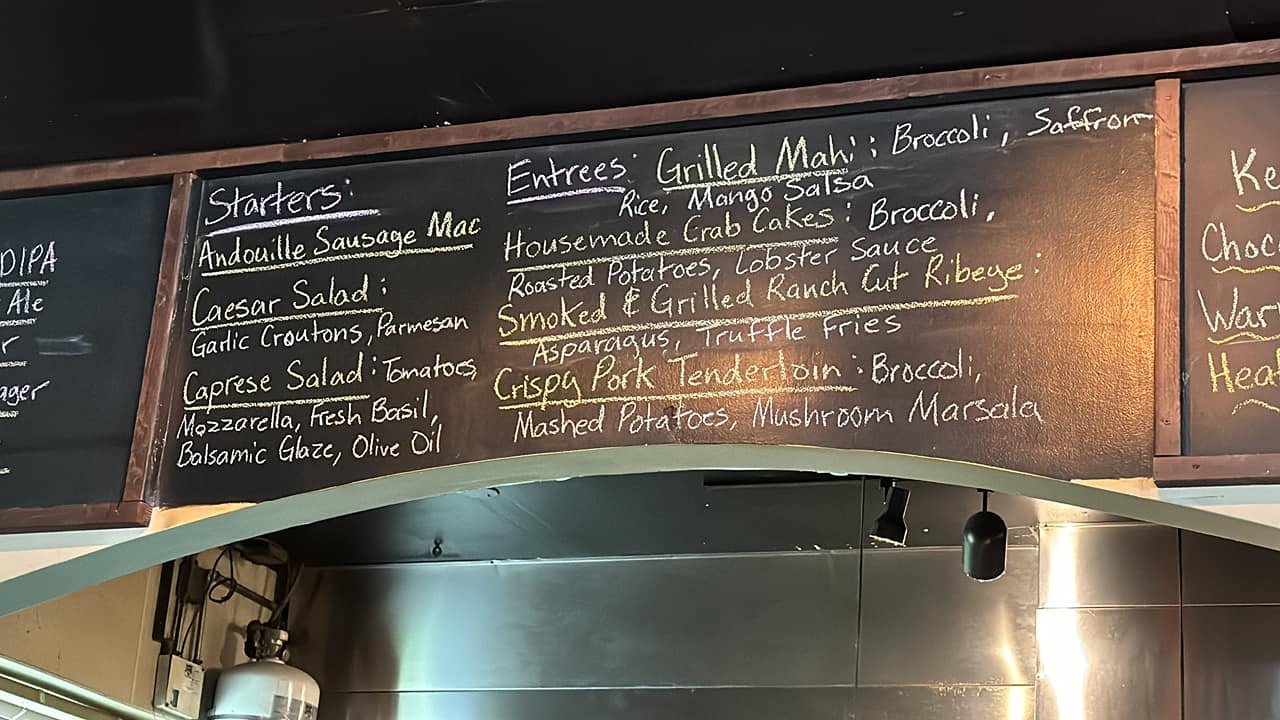 DIPA
Ale
Starters:
Andouille Sausage Mac
Caesar Salad:
Garlic Croutons, Parmesan
Caprese Salad: Tomatoes,
Mozzarella, Fresh Basil,
Balsamic Glaze, Olive Oil
Entrees: Grilled Mahi: Broccoli, Saffron
Rice, Mango Salsa
Housemade Crab Cakes: Broccoli,
Roasted Potatoes, Lobster Sauce
Smoked & Grilled Ranch Cut Ribeye:
Asparagus, Truffle Fries
Crispy Pork Tenderloin: Broccoli,
Mashed Potatoes, Mushroom Marsala